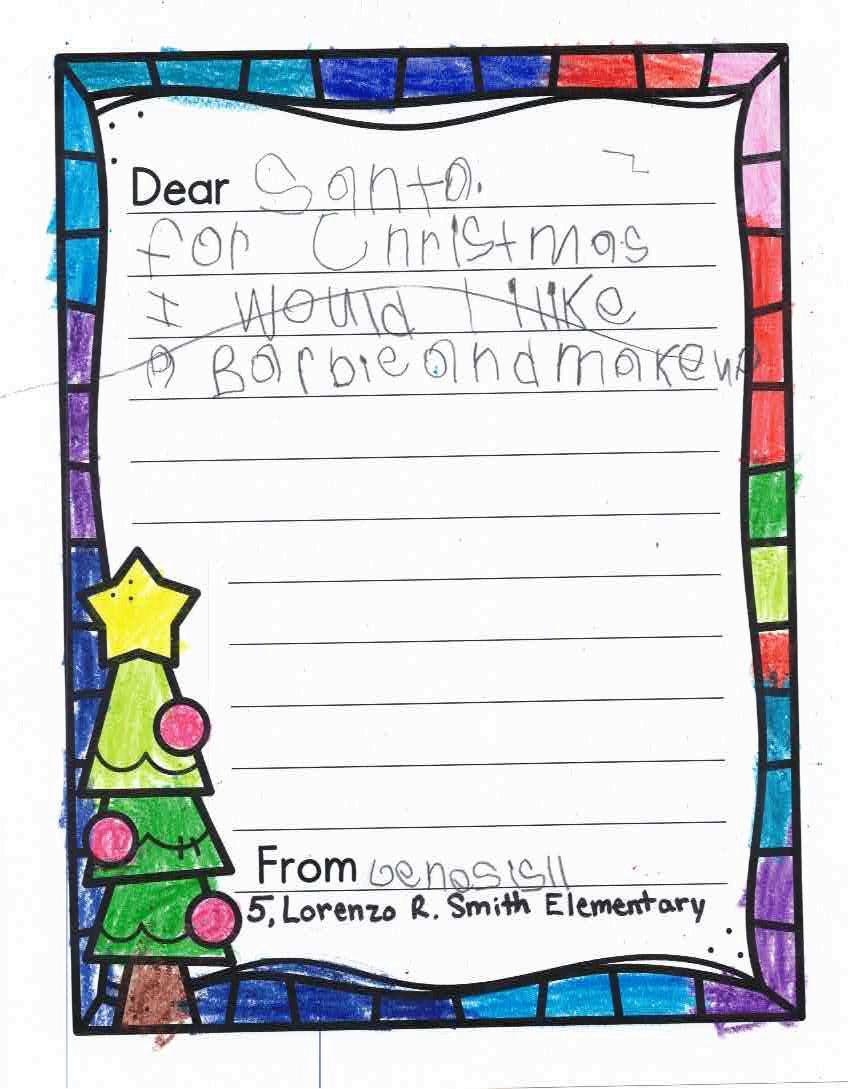 Dear Santa.
for Christmas
I would l like
a Barbie and makeup
From Genesis ll
5, Lorenzo R. Smith Elementary